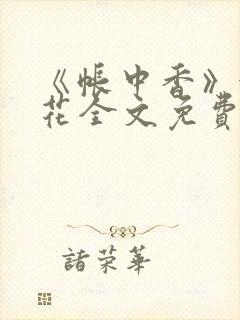 《帐中香》
花全文免費
諸荣華